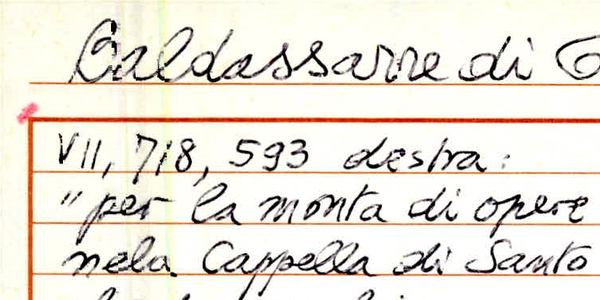 Baldassarre di
VII, 718, 593 destra:
"per la monta di opere
nela Cappella di Santo